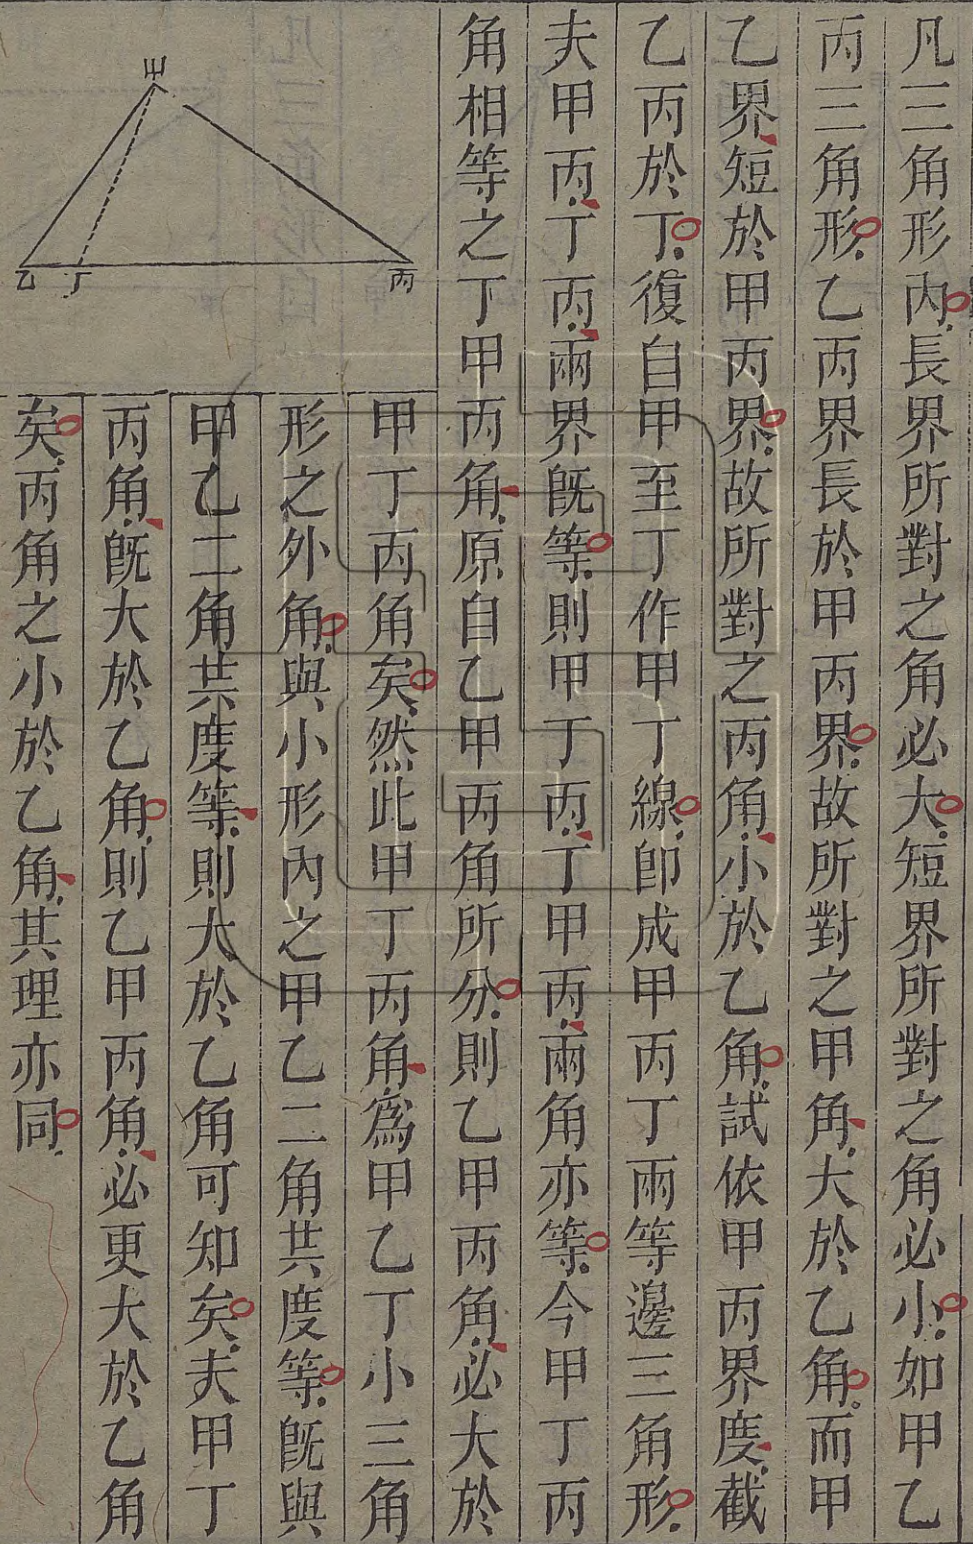 凡三角形內長界所對之角必大短界所對之角必小如甲乙
丙三角形乙丙界長於甲丙界故所對之甲角大於乙角而甲
乙界短於甲丙界故所對之丙角小於乙角試依甲丙界度截
乙丙於丁復自甲至丁作甲丁線卽成甲丙丁兩等邊三角形
夫甲丙丁丙兩界旣等則甲丁丙丁甲丙兩角亦等今甲丁丙
角相等之丁甲丙角原自乙甲丙角所分則乙甲丙角必大於
甲丁丙角矣然此甲丁丙角爲甲乙丁小三角
形之外角與小形內之甲乙二角共度等旣與
甲乙二角共度等則大於乙角可知矣夫甲丁
丙角旣大於乙角則乙甲丙角必更大於乙角
矣丙角之小於乙角其理亦同
甲
乙
丁
丙